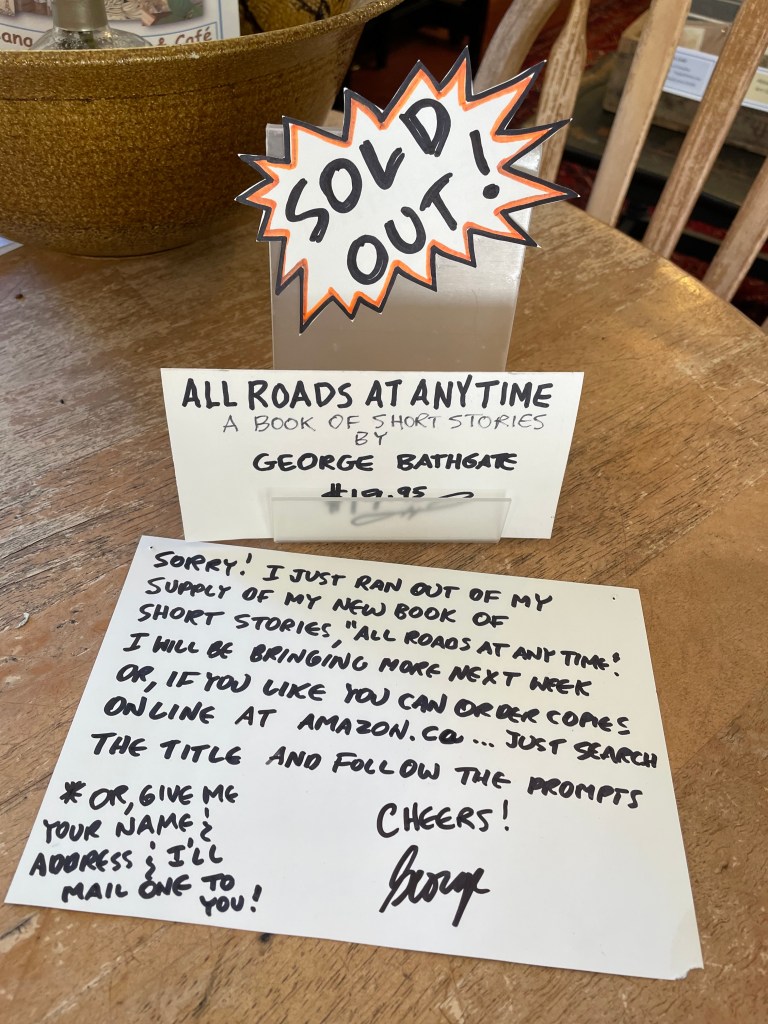 & Café
SOLD
OUT!
ALL ROADS AT ANYTIME
A BOOK OF SHORT STORIES
BY
GEORGE BATHGATE
SORRY! I JUST RAN OUT OF MY
SUPPLY OF MY NEW BOOK OF
SHORT STORIES, "ALL ROADS AT ANY TIME!
I WILL BE BRINGING MORE NEXT WEEK
OR, IF YOU LIKE YOU CAN ORDER COPIES
ONLINE AT AMAZON.ca... JUST SEARCH
THE TITLE AND FOLLOW THE PROMPTS
CHEERS!
George
* OR, GIVE ME
YOUR NAME &
ADDRESS & I'LL
MAIL ONE TO
YOU!